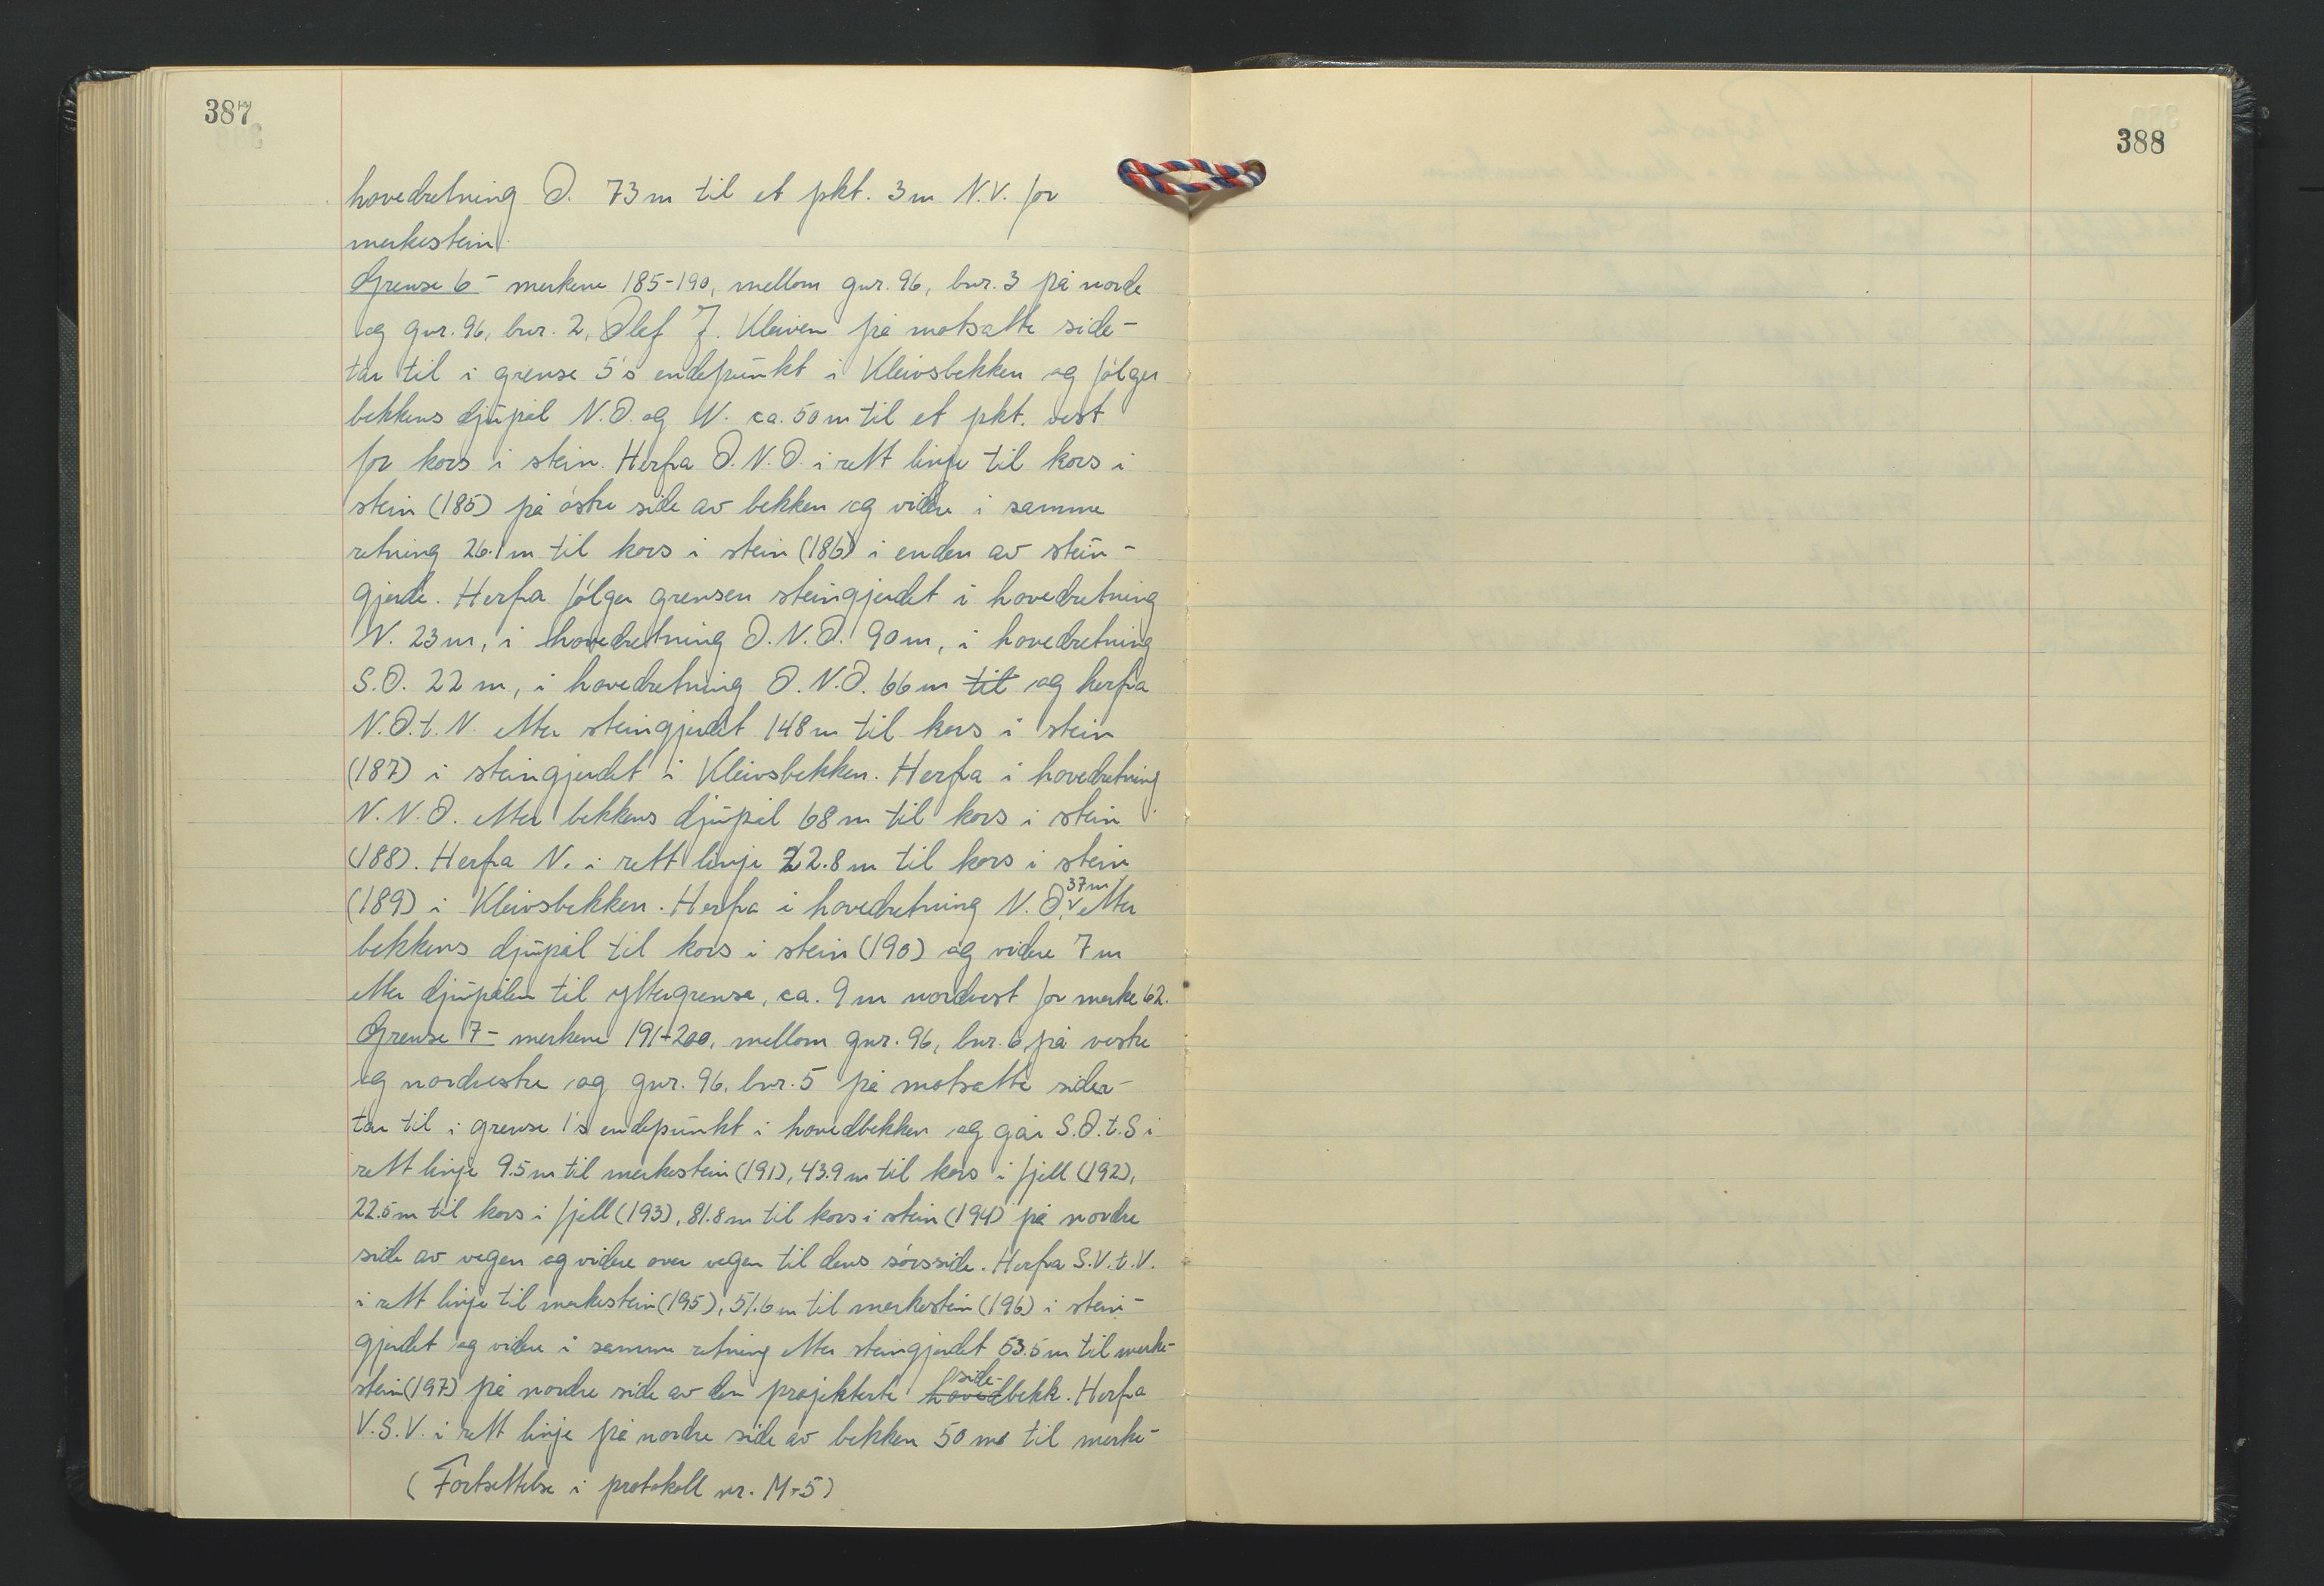 387
hovedretning Ø. 73 m til et pkt. 3 m N.V. for
merkestein.
Grense 6 - merkene 185-190, mellom gnr. 96, bnr. 3 på norde
og gnr. 96, bnr. 2, Olef J. Kleiven på motsatte side -
tar til i grense 5's endepunkt i Kleivsbekken og følger
bekkens djupål N.Ø. og N. ca. 50 m til et pkt. vest
for kors i stein. Herfra Ø.N.Ø. i rett linje til kors i
stein (185) på østre side av bekken og videre i samme
retning 26.1 m til kors i stein (186) i enden av stein-
gjerde. Herfra følger grensen steingjerdet i hovedretning
N. 23 m, i hovedretning Ø.N.Ø. 90 m, i hovedretning
S.Ø. 22 m, i hovedretning Ø.N.Ø. 66 m til og herfra
N.Ø.t.N. etter steingjerdet 148 m til kors i stein
(187) i steingjerdet i Kleivsbekken. Herfra i hovedretning
N.N.Ø. etter bekkens djupål 68 m til kors i stein
(188). Herfra N. i rett linje 22.8 m til kors i stein
(189) i Kleivsbekken. Herfra i hovedretning N.Ø. 37 m etter
bekkens djupål til kors i stein (190) og videre 7 m
etter djupålen til yttergrense, ca. 9 m nordvest for merke 62.
Grense 7 - merkene 191-200, mellom gnr. 96, bnr. 6 på vestre
og nordvestre og gnr. 96, bnr. 5 på motsatte sider -
tar til i grense 1's endepunkt i hovedbekken og går S.Ø.t.S i
rett linje 9.5 m til merkestein (191), 43.9 m til kors i fjell (192),
22.5 m til kors i fjell (193), 81.8 m til kors i stein (194) på nordre
side av vegen og videre over vegen til dens sørside. Herfra S.V.t.V.
i rett linje til merkestein (195), 51.6 m til merkestein (196) i stein-
gjerdet og videre i samme retning etter steingjerdet 53.5 m til merke-
stein (197) på nordre side av den projekterte hoved side-bekk. Herfra
V.S.V. i rett linje på nordre side av bekken 50 m til merke-
(Fortsettelse i protokoll nr. M-5)
388